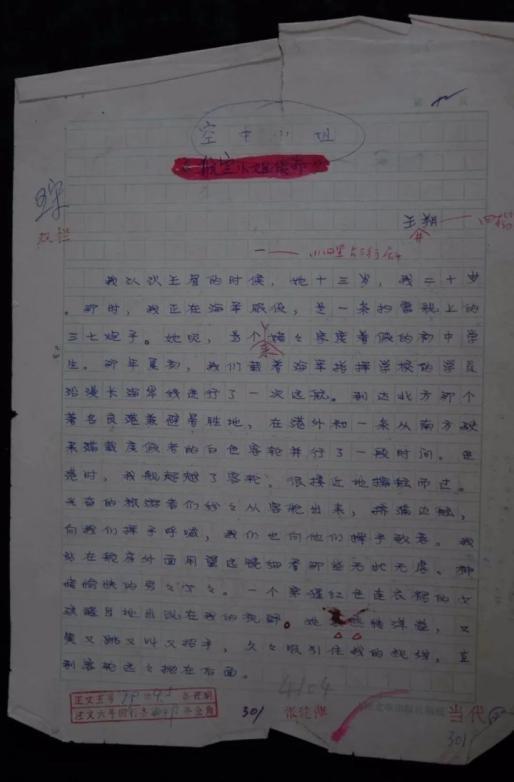 空中小姐
王朔
一
我认识王眉的时候，她十三岁，我二十岁
。那时，我正在海军服役，是一条扫雷舰上的
三七炮手。她呢，是个来度暑假的初中学
生。那年夏初，我们载着海军指挥学校的学员
沿漫长海岸线进行了一次远航。到达北方那个
著名良港兼避暑胜地，在港外和一条从南方驶
来满载度假者的白色客轮并行了一段时间。进
港时，我舰超越了客轮，很接近地擦舷而过。
兴奋的旅游者们纷々从客舱出来，挤满边舷，
向我们挥手呼喊，我们也向他们挥手致意。我
站在舱房外面用望远镜细看那些无忧无虑、神
情愉快的男々女々。一个穿猩红色连衣裙的女
孩醒目地出现在我的视野。她
笑又跳又叫又招手，久々吸引住我的视线，直
到客轮远々抛在后面。
4104
301
当代
301